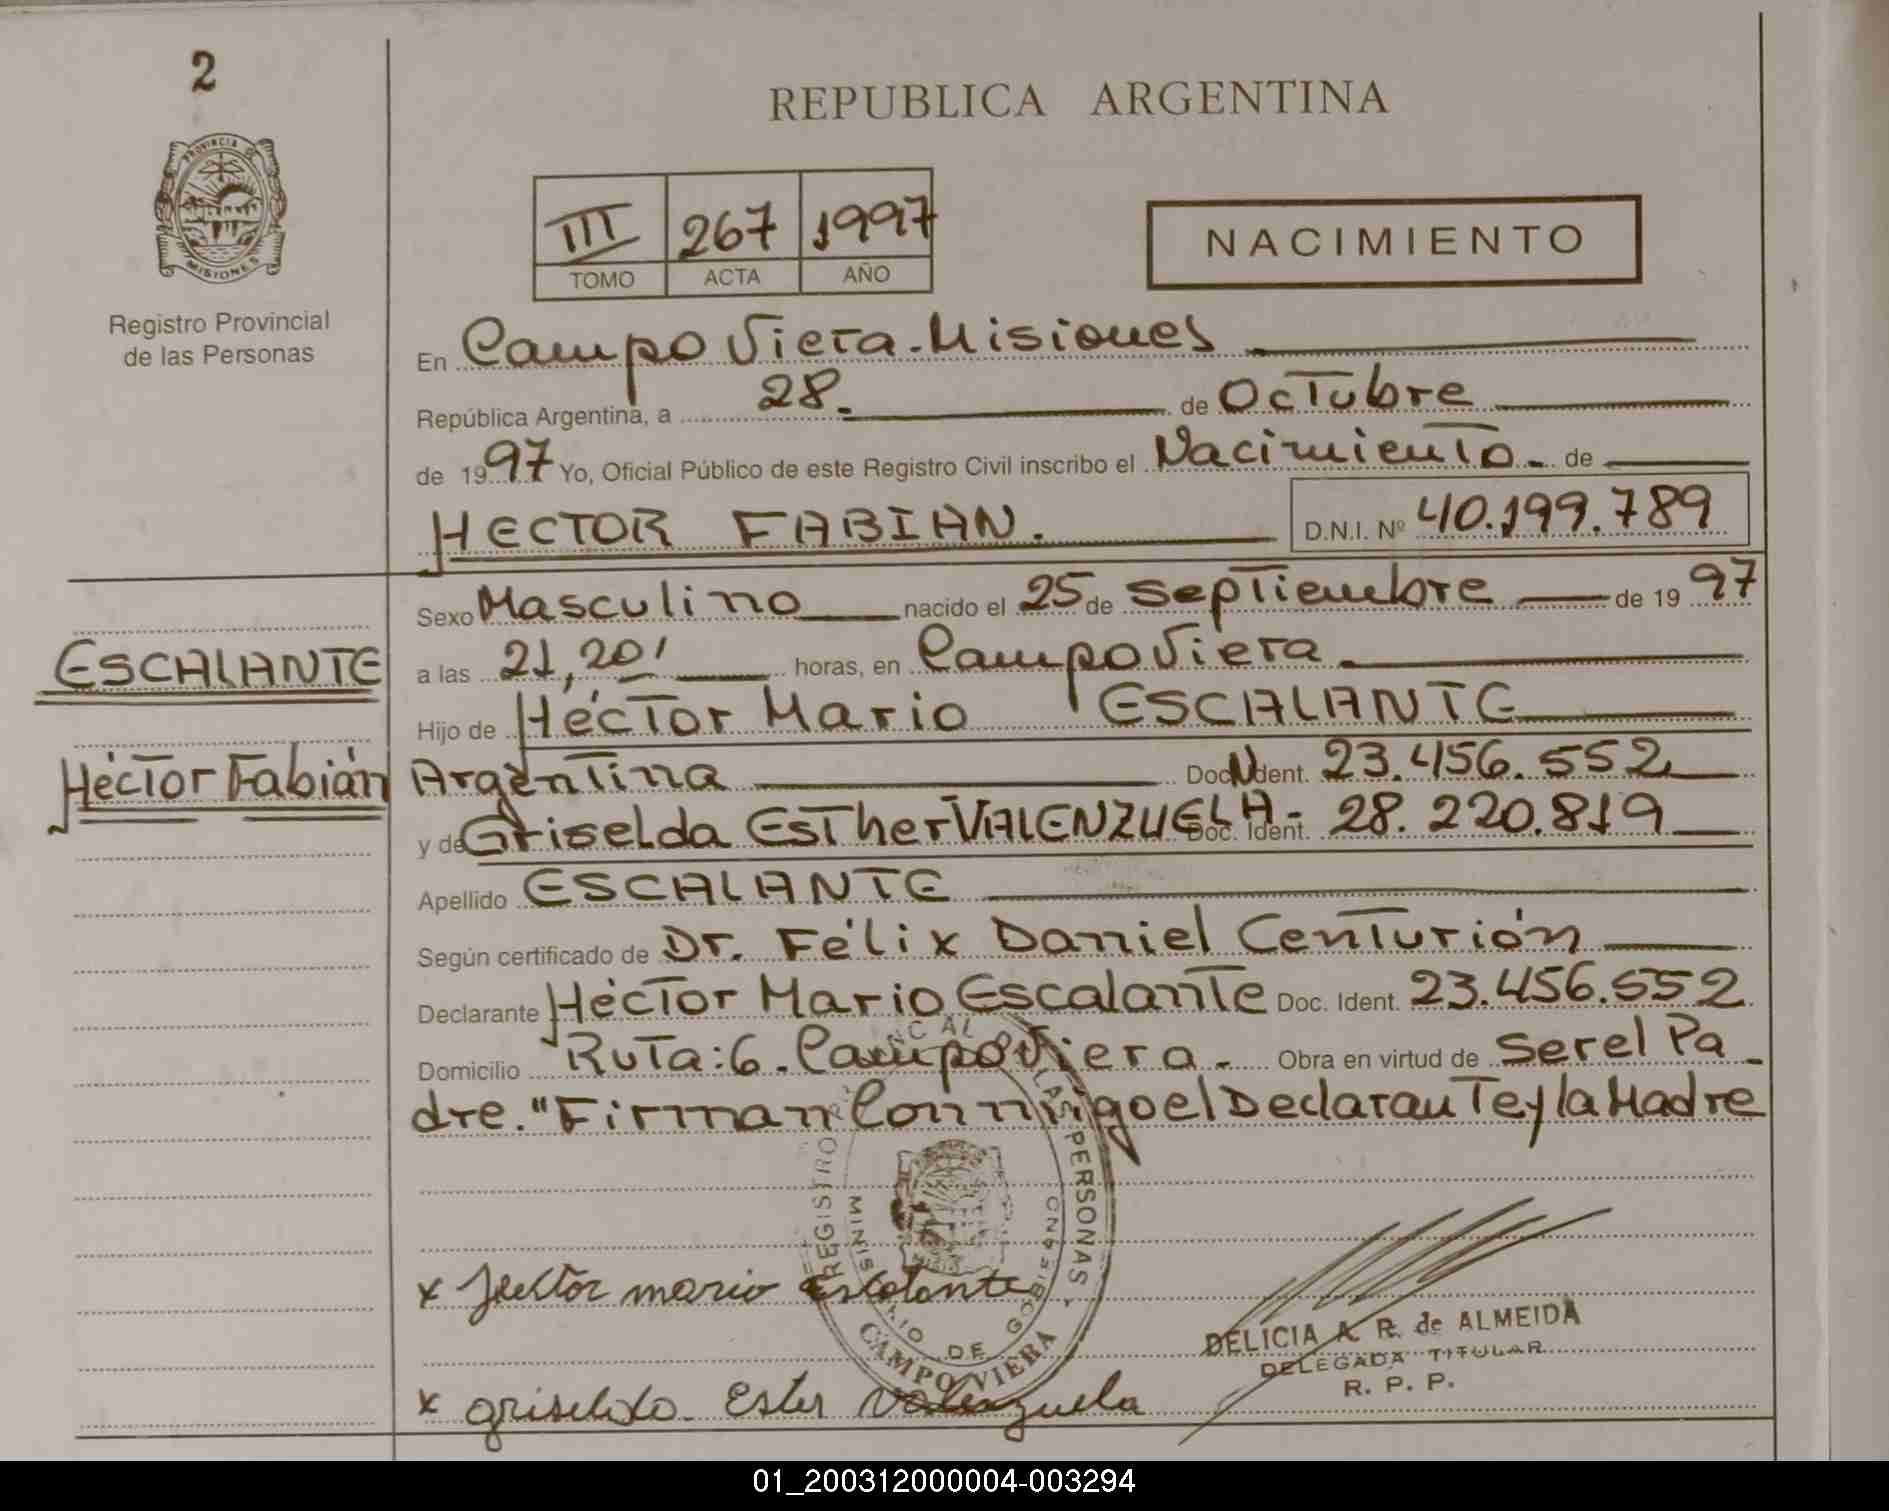 2
REPUBLICA ARGENTINA
PROVINCIA DE
MISIONES
Registro Provincial
de las Personas
III 267 1997
TOMO ACTA AÑO
NACIMIENTO
En Campo Viera-Misiones
República Argentina, a 28. de Octubre
de 1997 Yo, Oficial Público de este Registro Civil inscribo el Nacimiento. de
HECTOR FABIAN. D.N.I. Nº 40.199.789
Sexo Masculino nacido el 25 de Septiembre de 1997
ESCALANTE
a las 21,20' horas, en Campo Viera.
Hijo de Héctor Mario ESCALANTE
Héctor Fabián
Argentina Doc. Ident. N 23.456.552
y de Griselda Esther VALENZUELA- Doc. Ident. 28.220.819
Apellido ESCALANTE
Según certificado de Dr. Félix Daniel Centurión
Declarante Héctor Mario Escalante Doc. Ident. 23.456.552
Domicilio Ruta: 6. Campo Viera. Obra en virtud de Ser el Pa-
dre. "Firman Conmigo el Declarante y la Madre
REGISTRO LAS PERSONAS
DE
CAMPO VIERA
x Hector mario Escalante
DELICIA A. R. de ALMEIDA
DELEGADA TITULAR
R. P. P.
x griselda Ester Valenzuela
01_200312000004-003294